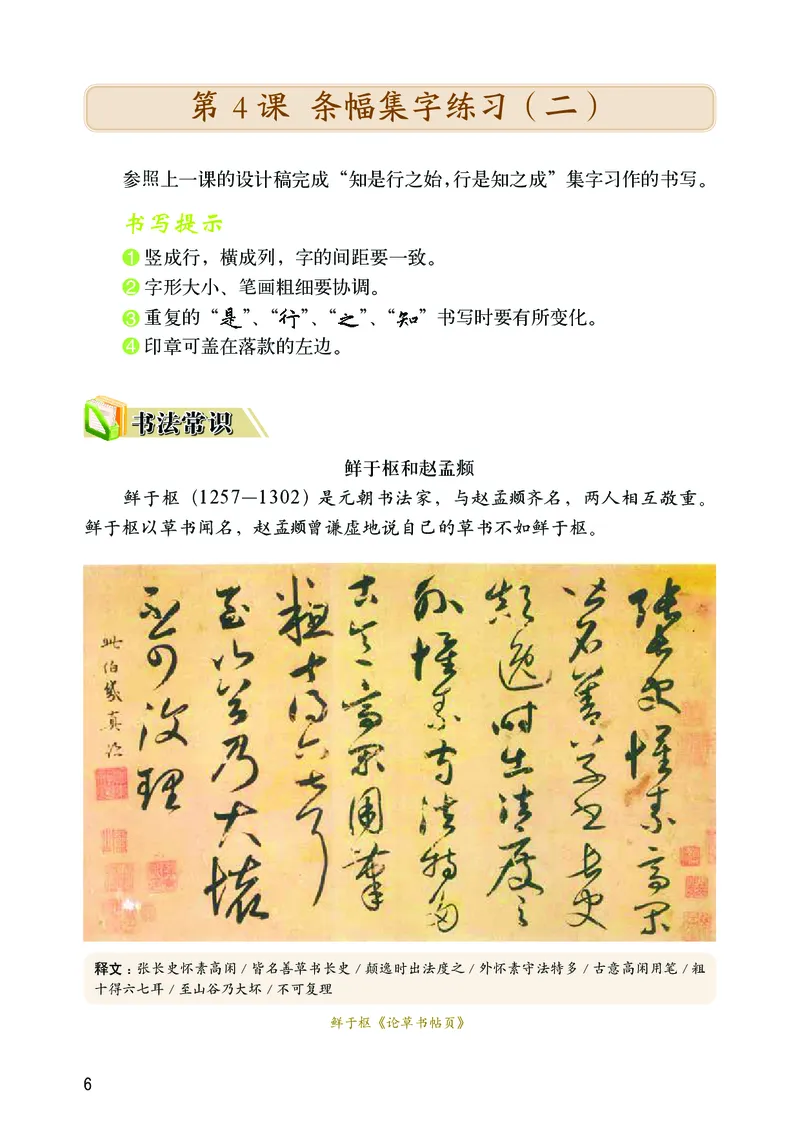 第 4 课 条幅集字练习（二）
参照上一课的设计稿完成“知是行之始，行是知之成”集字习作的书写。
书写提示
1 竖成行，横成列，字的间距要一致。
2 字形大小、笔画粗细要协调。
3 重复的“是”、“行”、“之”、“知”书写时要有所变化。
4 印章可盖在落款的左边。
书法常识
鲜于枢和赵孟頫
鲜于枢（1257—1302）是元朝书法家，与赵孟頫齐名，两人相互敬重。
鲜于枢以草书闻名，赵孟頫曾谦虚地说自己的草书不如鲜于枢。
张长史怀素高闲
皆名善草书长史
颠逸时出法度之
外怀素守法特多
古意高闲用笔
粗十得六七耳
至山谷乃大坏
不可复理
此伯几真迹
释文：张长史怀素高闲 / 皆名善草书长史 / 颠逸时出法度之 / 外怀素守法特多 / 古意高闲用笔 / 粗
十得六七耳 / 至山谷乃大坏 / 不可复理
鲜于枢《论草书帖页》
6